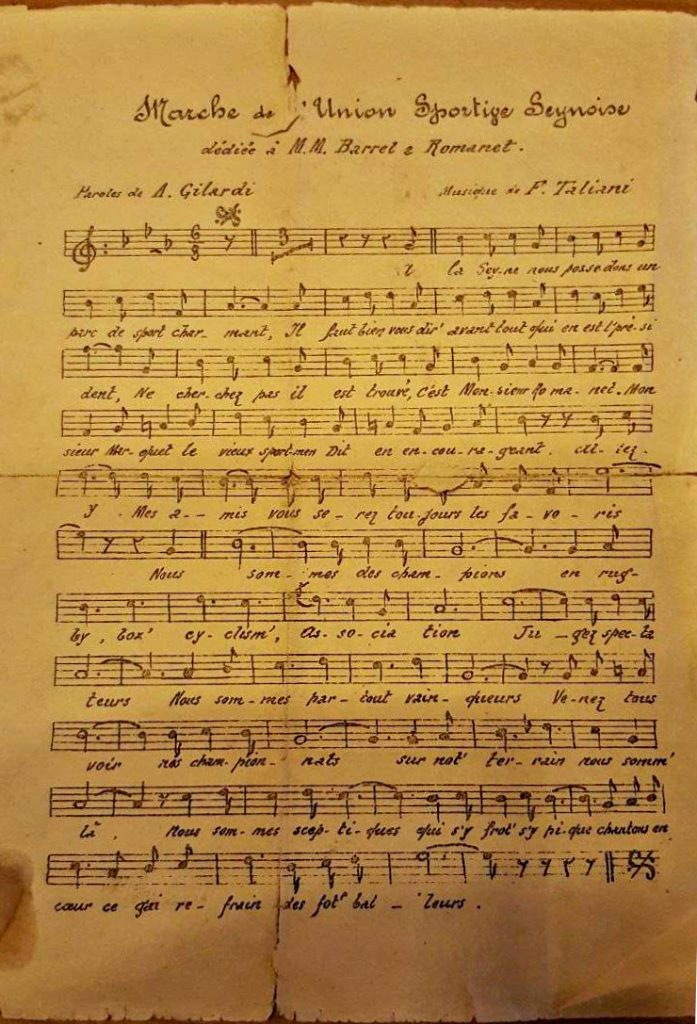 Marche de l'Union Sportive Seynoise
dédiée à M.M. Barret e Romanet.
Paroles de A. Gilardi Musique de F. Taliani
6 8 3
la Sey-ne nous possedons un
parc de sport char-mant, Il faut bien vous dir' avant tout qui en est l'pré-si
dent, Ne cher-chez pas il est trouvé, C'est Mon-sieur Ro ma-net. Mon
sieur Mar-quet le vieux sport-men Dit en en-cou-ra-geant. al-lez-
y. Mes a-mis vous se-rez tou-jours les fa-vo-ris
Nous som-mes des cham-pions en rug-
by, box' cy-clism', As-so-cia tion Ju-gez spec-ta
teurs Nous som-mes par-tout vain-queurs Ve-nez tous
voir nos cham-pion-nats sur not' ter-rain nous somm'
là. Nous som-mes scep-ti-ques qui s'y frot' s'y pi-que chantons en
cœur ce gai re-frain des fot' bal-leurs.